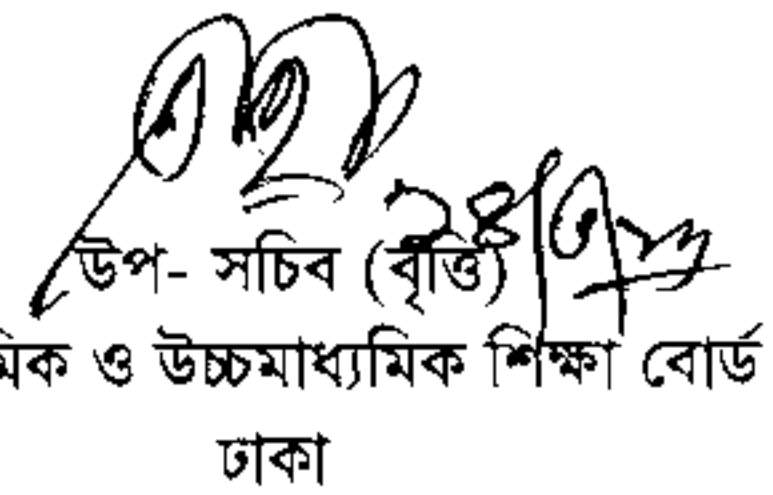 উপ- সচিব (বৃত্তি)
মিক ও উচ্চমাধ্যমিক শিক্ষা বোর্ড
ঢাকা